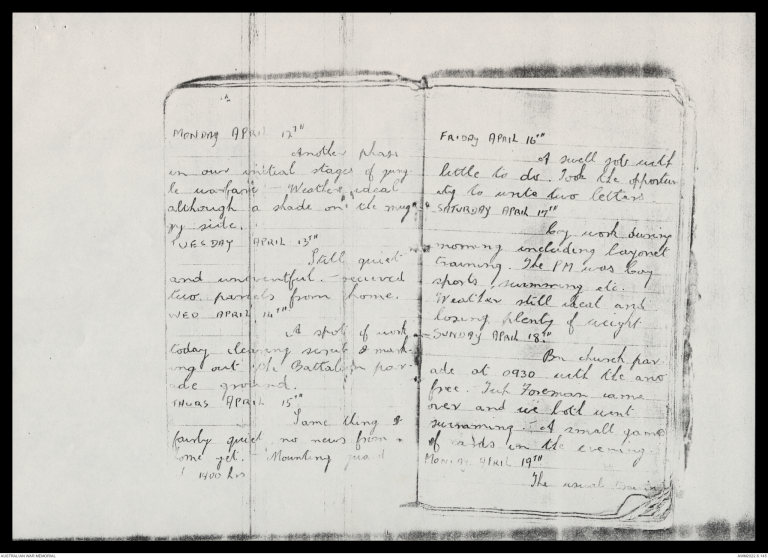 MONDAY APRIL 12TH
Another phase
in our initial stages of jung-
le warfare - Weather ideal
although a shade on the mug-
gy side.
TUESDAY APRIL 13TH
Still quiet
and uneventful. - recieved
two parcels from home.
WED APRIL 14TH
A spot of work
today clearing scrub & mark-
ing out the Battalion par-
ade ground.
THURS APRIL 15TH
Same thing &
fairly quiet, no news from
home yet. - Mounting guard
1800 hrs
FRIDAY APRIL 16TH
A swell job with
little to do. Took the opportun
ity to write two letters
SATURDAY APRIL 17TH
Coy work during
morning including bayonet
training. The PM was coy
sports, swimming etc.
Weather still ideal and
losing plenty of weight
SUNDAY APRIL 18TH
Bn church par-
ade at 0930 with the
free. Foreman came
over and we both went
swimming - A small game
of cards in the evening.
MONDAY APRIL 19TH
The usual
AUSTRALIAN WAR MEMORIAL